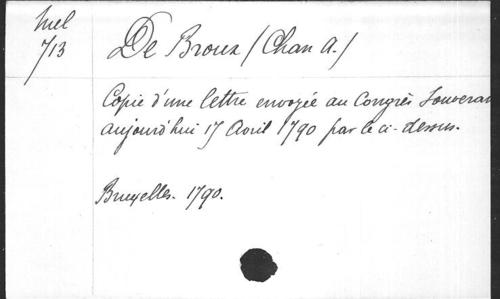 Mel
713
De Broux (Chan A.)
Copie d'une lettre envoyée au Congrès Souverain
aujourd'hui 17 Avril 1790 par le ci-dessus.
Bruxelles. 1790.